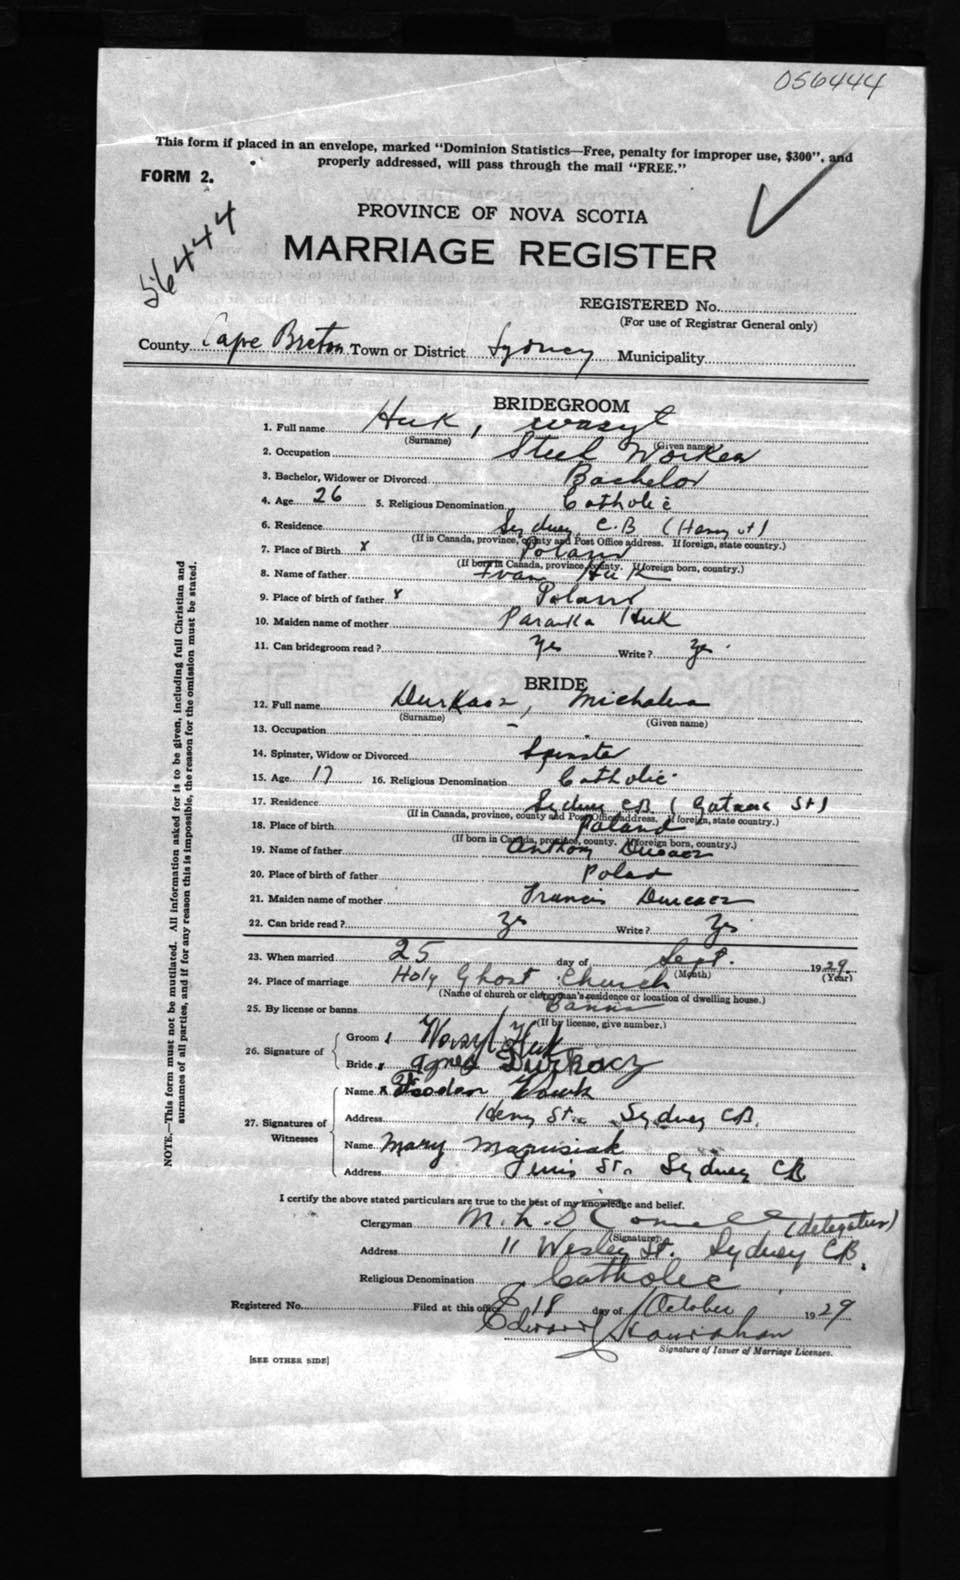 056444
This form if placed in an envelope, marked "Dominion Statistics—Free, penalty for improper use, $300", and
properly addressed, will pass through the mail "FREE."
FORM 2.
56444
PROVINCE OF NOVA SCOTIA
MARRIAGE REGISTER
REGISTERED No.
(For use of Registrar General only)
County Cape Breton Town or District Sydney Municipality
BRIDEGROOM
1. Full name Huk, Wasyl
(Surname) (Given name)
2. Occupation Steel Worker
3. Bachelor, Widower or Divorced Bachelor
4. Age 26 5. Religious Denomination Catholic
6. Residence Sydney C.B (Henry St)
(If in Canada, province, county and Post Office address. If foreign, state country.)
7. Place of Birth x Poland
(If born in Canada, province, county. If foreign born, country.)
8. Name of father Ivan Huk
9. Place of birth of father x Poland
10. Maiden name of mother Paranka Huk
11. Can bridegroom read? Yes Write? Yes
BRIDE
12. Full name Durkacz, Michalina
(Surname) (Given name)
13. Occupation –
14. Spinster, Widow or Divorced Spinster
15. Age 17 16. Religious Denomination Catholic
17. Residence Sydney CB ( St)
(If in Canada, province, county and Post Office address. If foreign, state country.)
18. Place of birth Poland
(If born in Canada, province, county. If foreign born, country.)
19. Name of father Anthony Ducacz
20. Place of birth of father Polad
21. Maiden name of mother Francis Durcacz
22. Can bride read? Yes Write? Yes
23. When married 25 day of Sept. 1929.
(Month) (Year)
24. Place of marriage Holy Ghost Church
(Name of church or clergyman's residence or location of dwelling house.)
25. By license or banns Banns
(If by license, give number.)
26. Signature of
Groom Wasyl Huk
Bride x Agnes Durkacz
27. Signatures of Witnesses
Name x Teodor
Address Henry St. Sydney CB.
Name Mary Marusiak
Address St. Sydney CB
I certify the above stated particulars are true to the best of my knowledge and belief.
Clergyman M. (delegatus)
(Signature)
Address 11 Wesley St. Sydney CB.
Religious Denomination Catholic
Registered No. Filed at this office 18 day of October 1929
Edward
Signature of Issuer of Marriage Licenses.
[SEE OTHER SIDE]
NOTE.—This form must not be mutilated. All information asked for is to be given, including full Christian and
surnames of all parties, and if for any reason this is impossible, the reason for the omission must be stated.